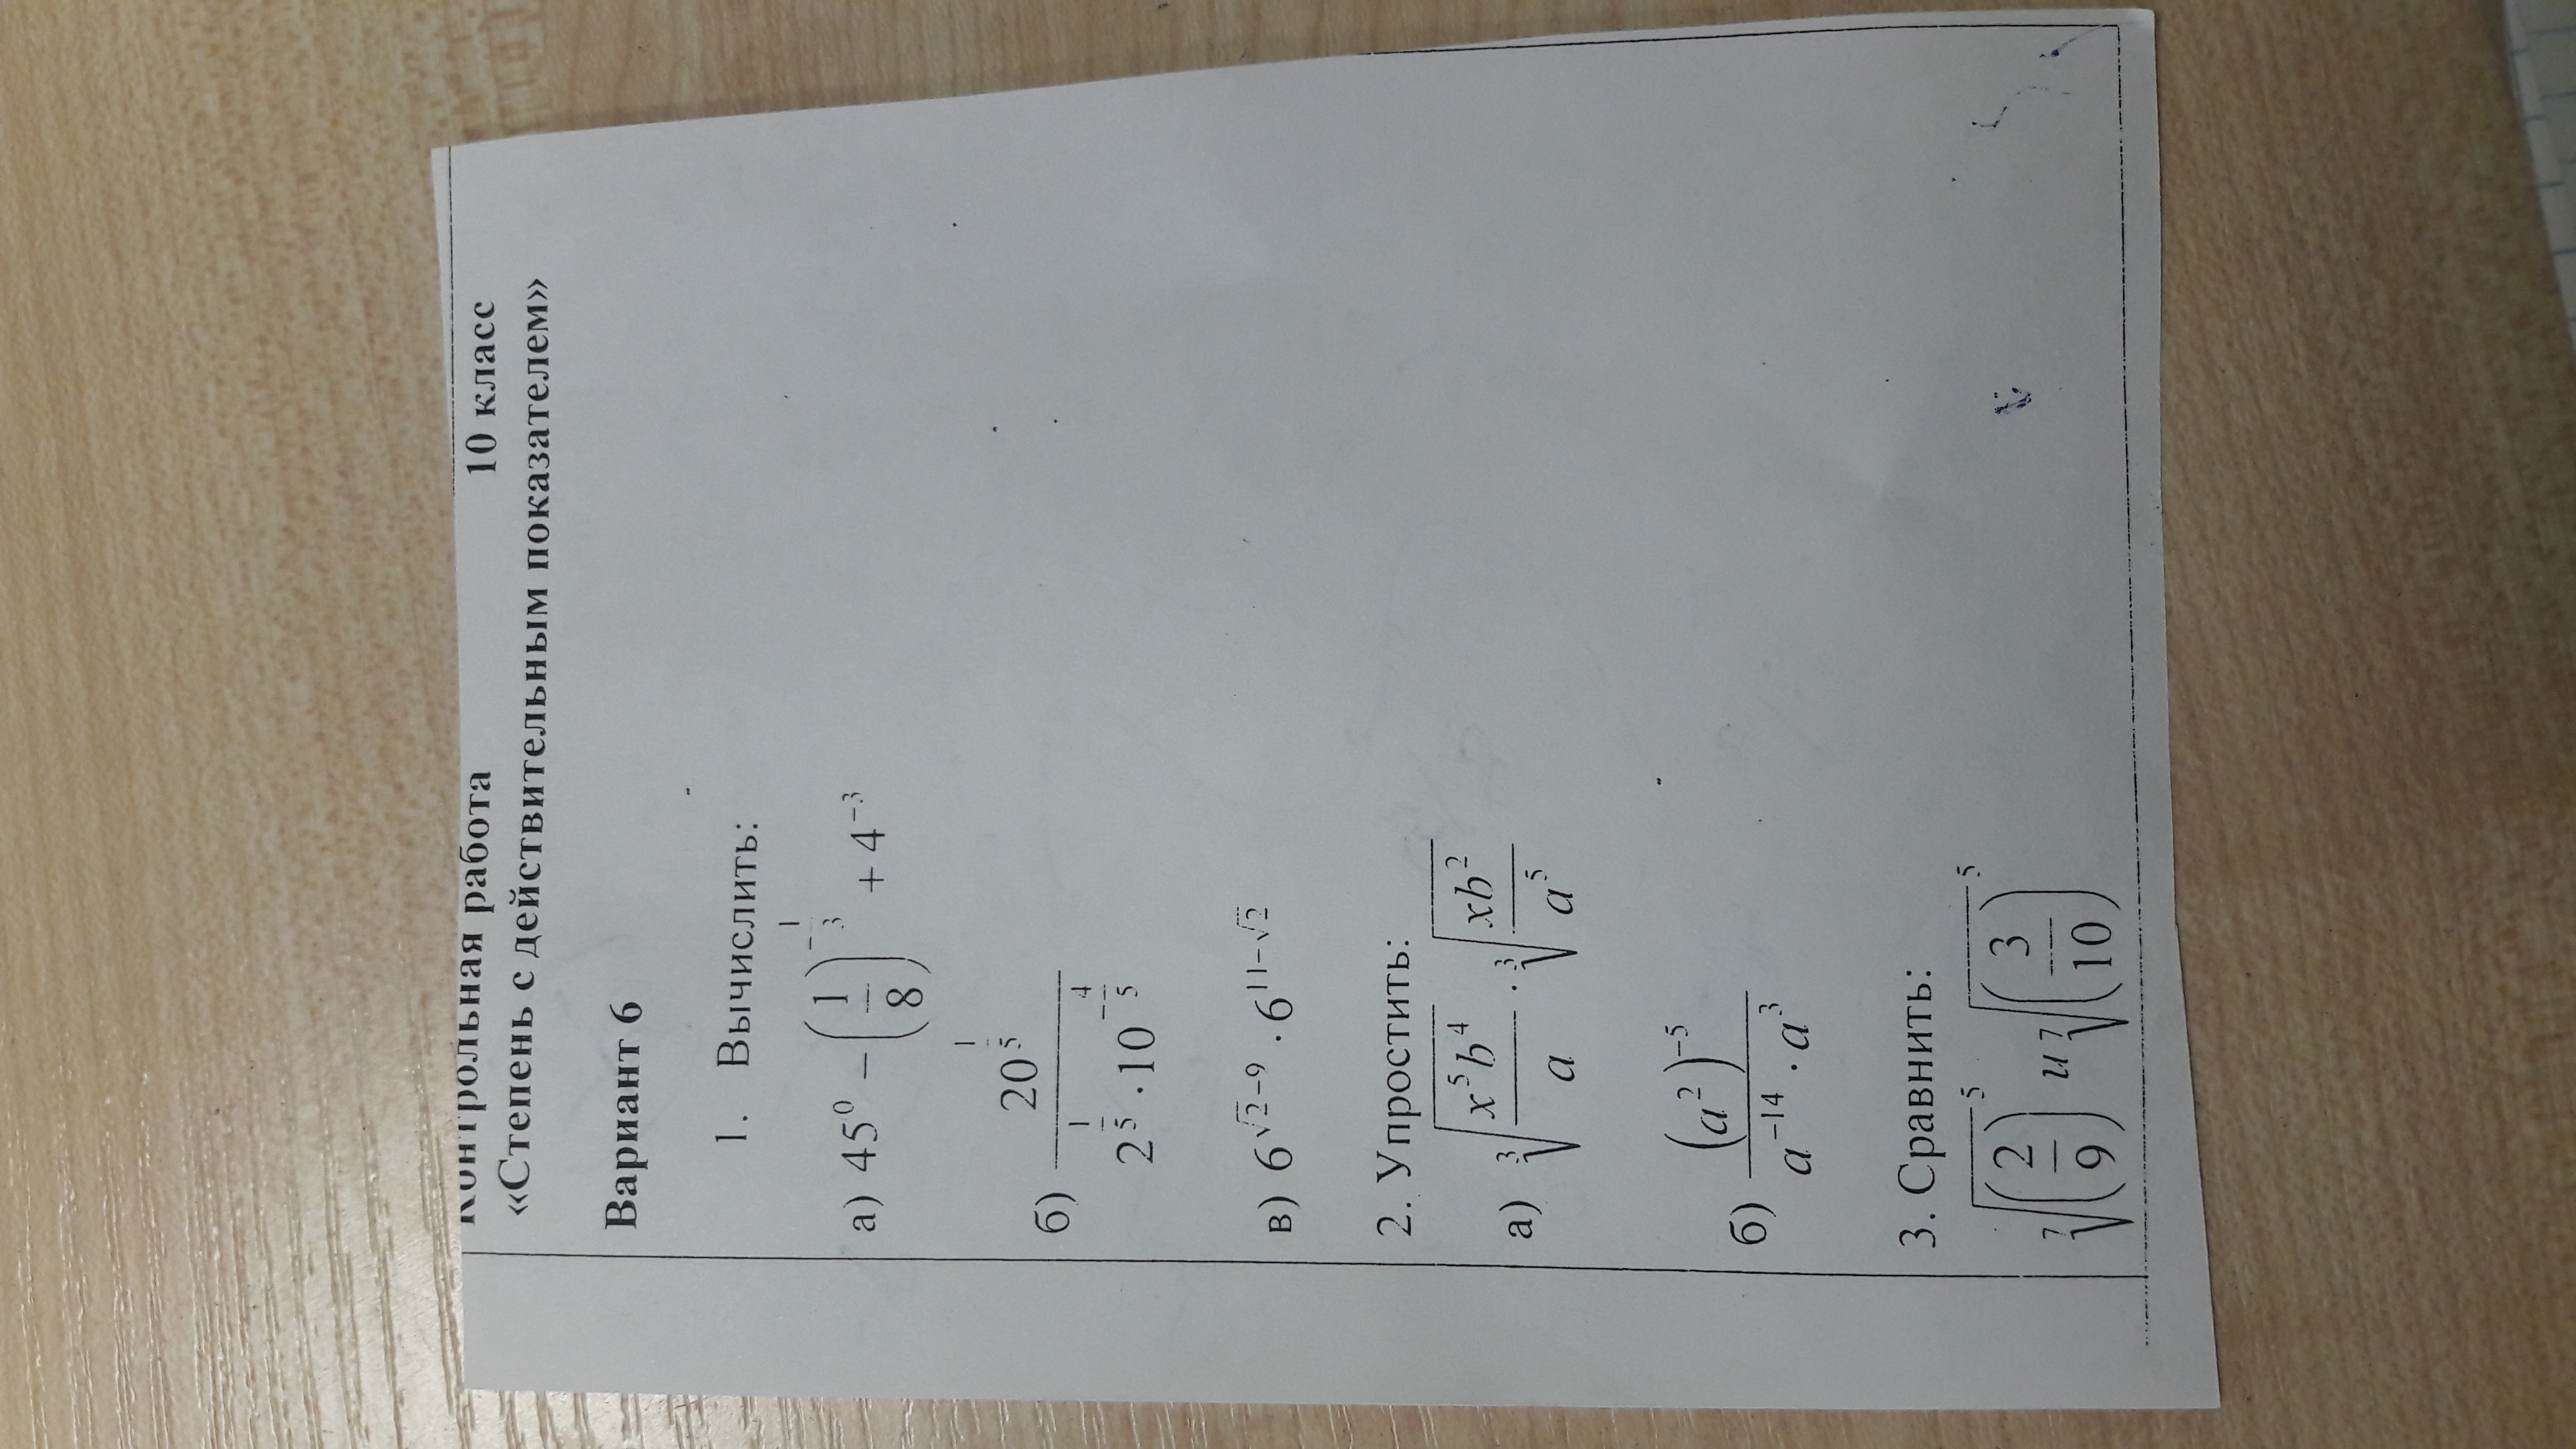 Контрольная работа 10 класс
«Степень с действительным показателем»
Вариант 6
1. Вычислить:
а) 45⁰ − (1/8)^(−1/3) + 4⁻³
б) 20^(1/5) / (2^(1/5) · 10^(−4/5))
в) 6^(√2−9) · 6^(11−√2)
2. Упростить:
а) ∛(x⁵b⁴/a) · ∛(xb²/a⁵)
б) (a²)⁻⁵ / (a⁻¹⁴ · a³)
3. Сравнить:
⁷√(2/9)⁵ и ⁷√(3/10)⁵